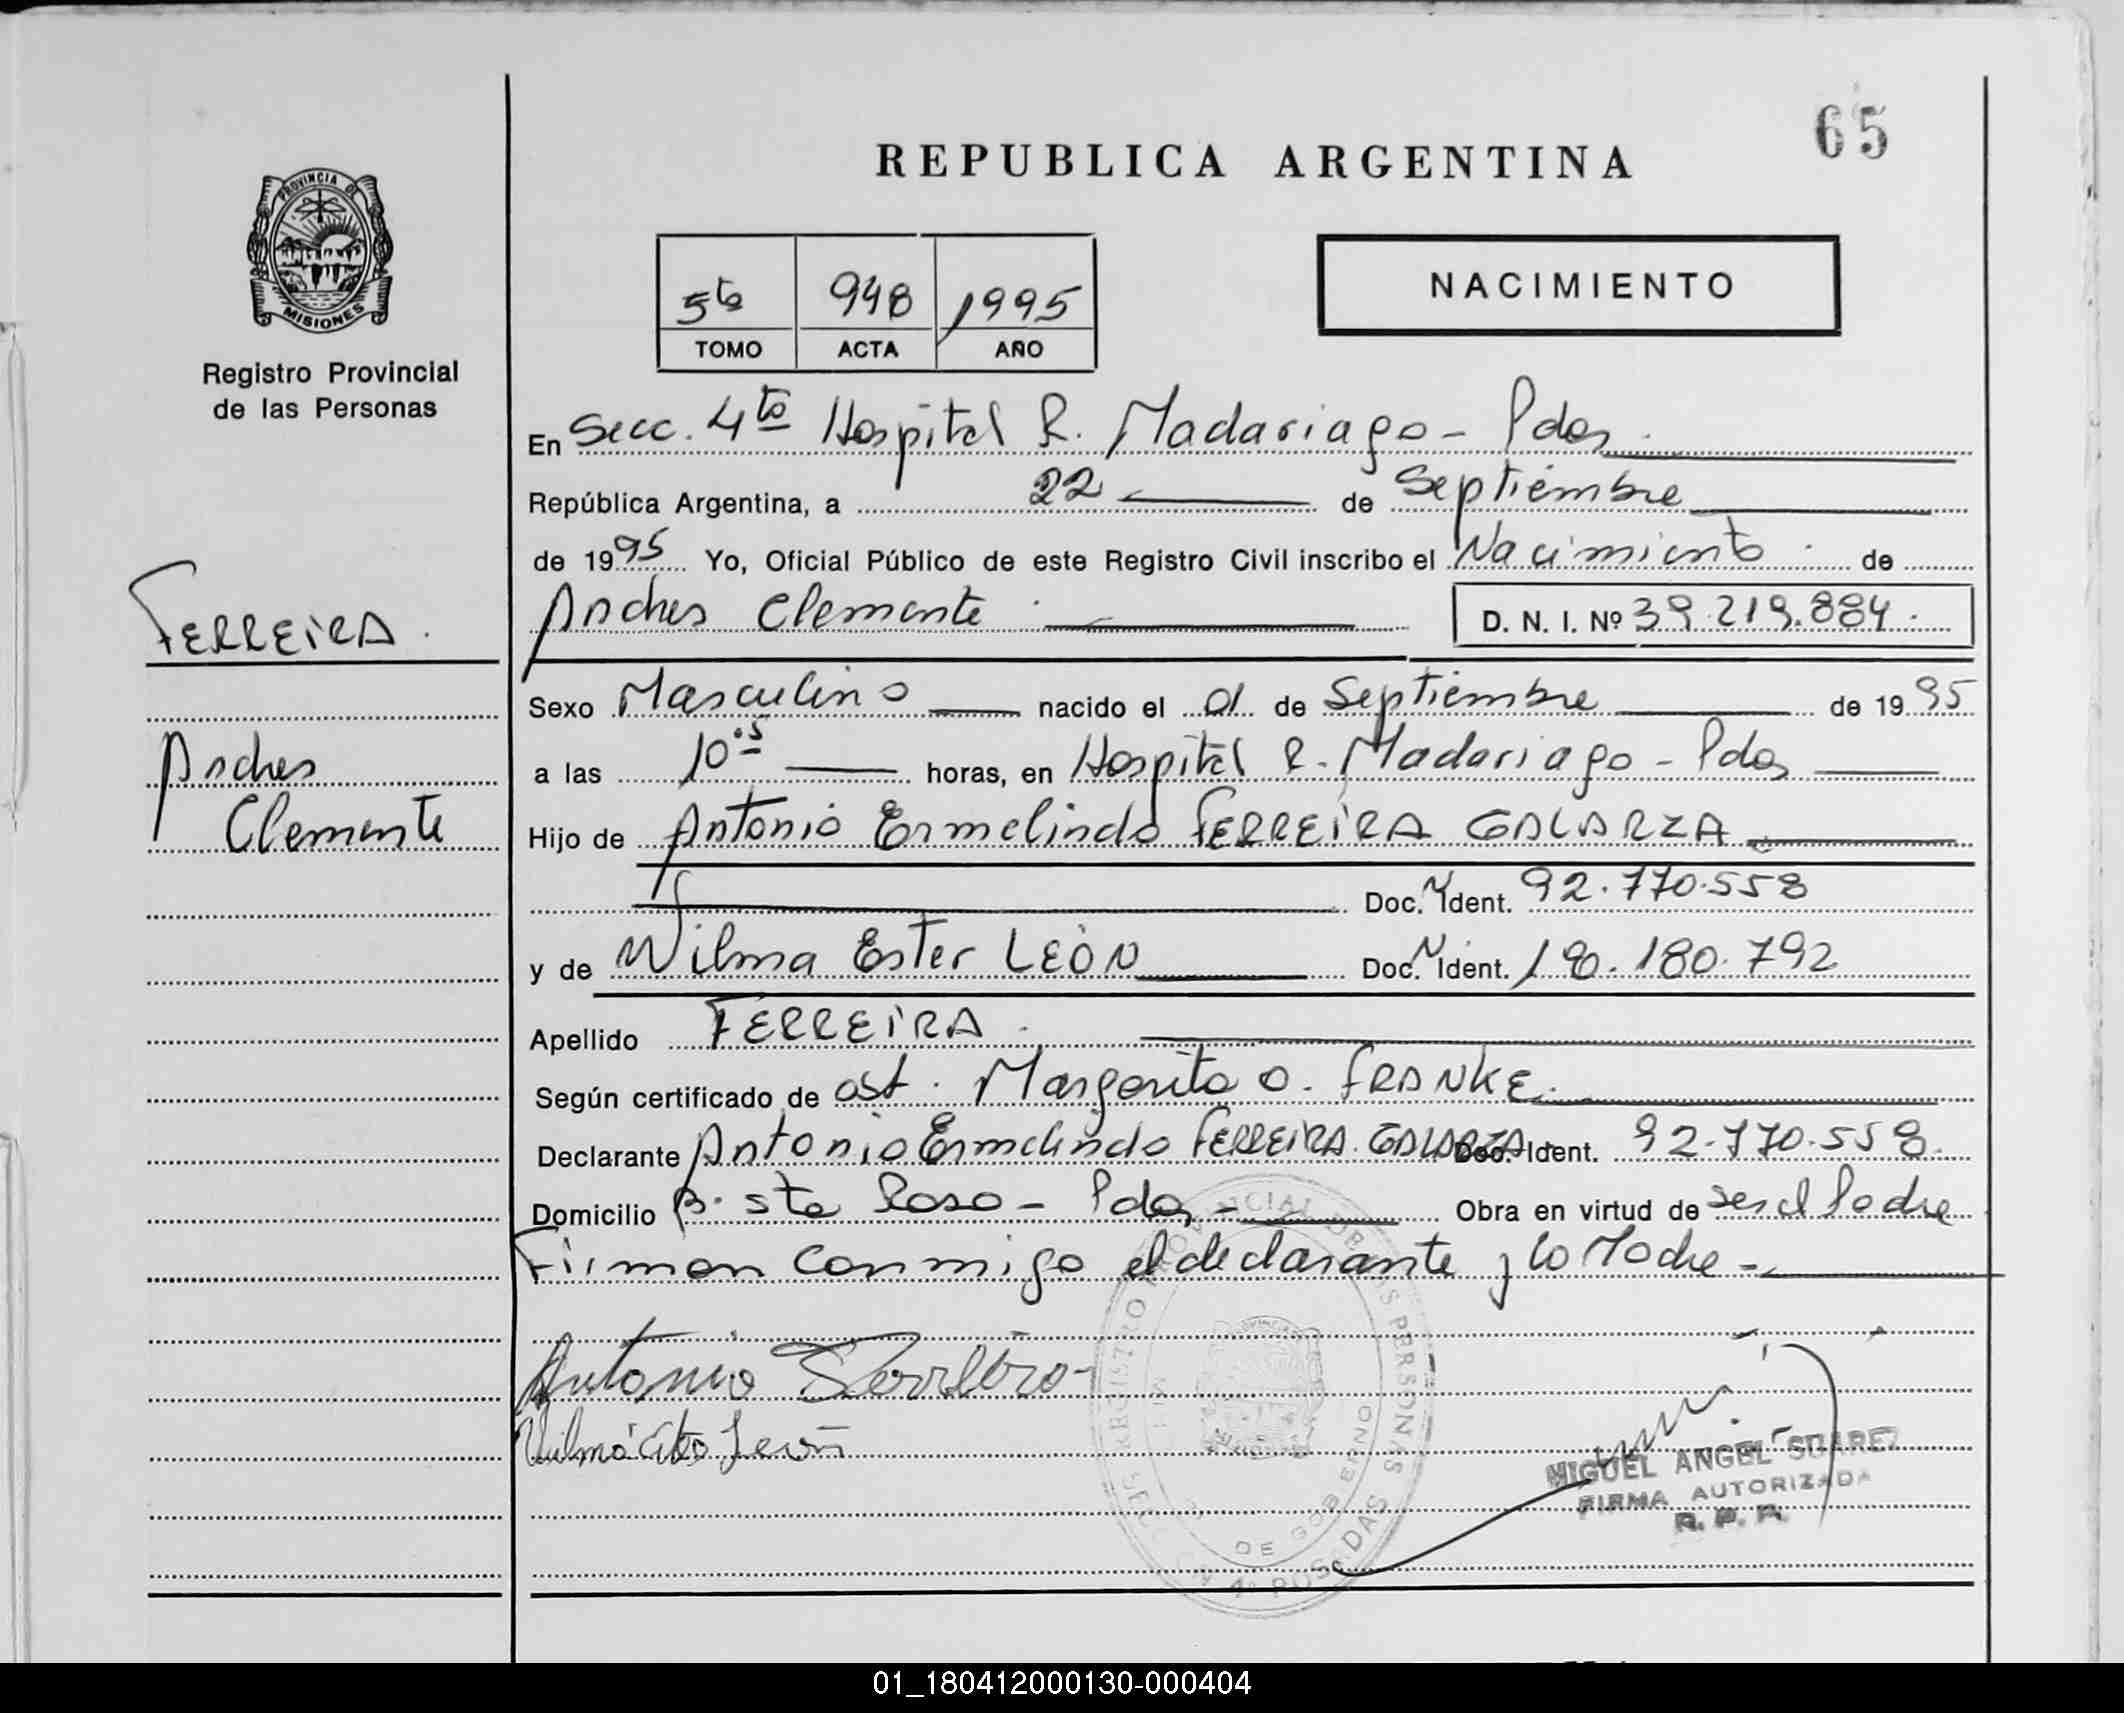 65
REPUBLICA ARGENTINA
PROVINCIA DE
MISIONES
Registro Provincial
de las Personas
5to 948 1995
TOMO ACTA AÑO
NACIMIENTO
En Secc. 4to Hospital R. Madariaga - Pdas.
República Argentina, a 22 de Septiembre
de 1995 Yo, Oficial Público de este Registro Civil inscribo el Nacimiento de
FERREIRA.
Andres Clemente D. N. I. Nº 39.219.884.
Sexo Masculino nacido el 01 de Septiembre de 1995
Andres
a las 10.15 horas, en Hospital R. Madariaga - Pdas
Clemente
Hijo de Antonio Ermelindo FERREIRA GALARZA
Doc. Ident. 92.770.558
y de Wilma Ester LEÒN Doc. Ident. 18.180.792
Apellido FERREIRA.
Según certificado de ost. Margarita O. FRANKE.
Declarante Antonio Ermelindo FERREIRA GALARZA Doc. Ident. 92.770.558.
Domicilio B. Sta Rosa - Pdas - Obra en virtud de ser el Padre
Firman conmigo el declarante y la Madre -
Antonio Ferreira
Wilma Ester León
REGISTRO PROVINCIAL DE LAS PERSONAS
DE GOBIERNO
POSADAS
MIGUEL ANGEL SUAREZ
FIRMA AUTORIZADA
R. P. P.
01_180412000130-000404